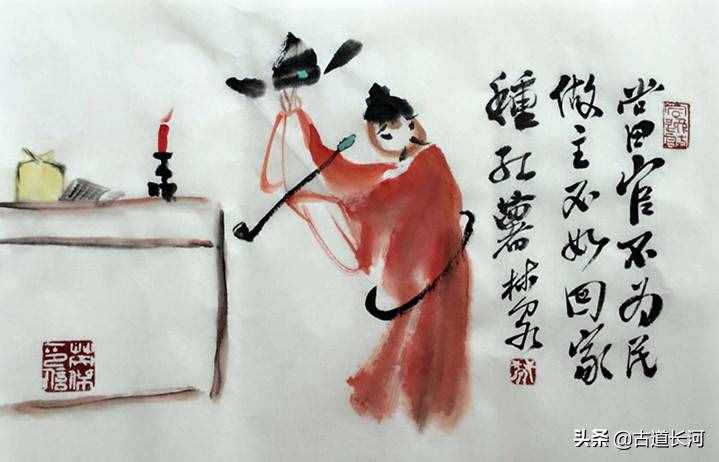 當官不为民
做主不如回家
種红薯 林
头条 @古道长河